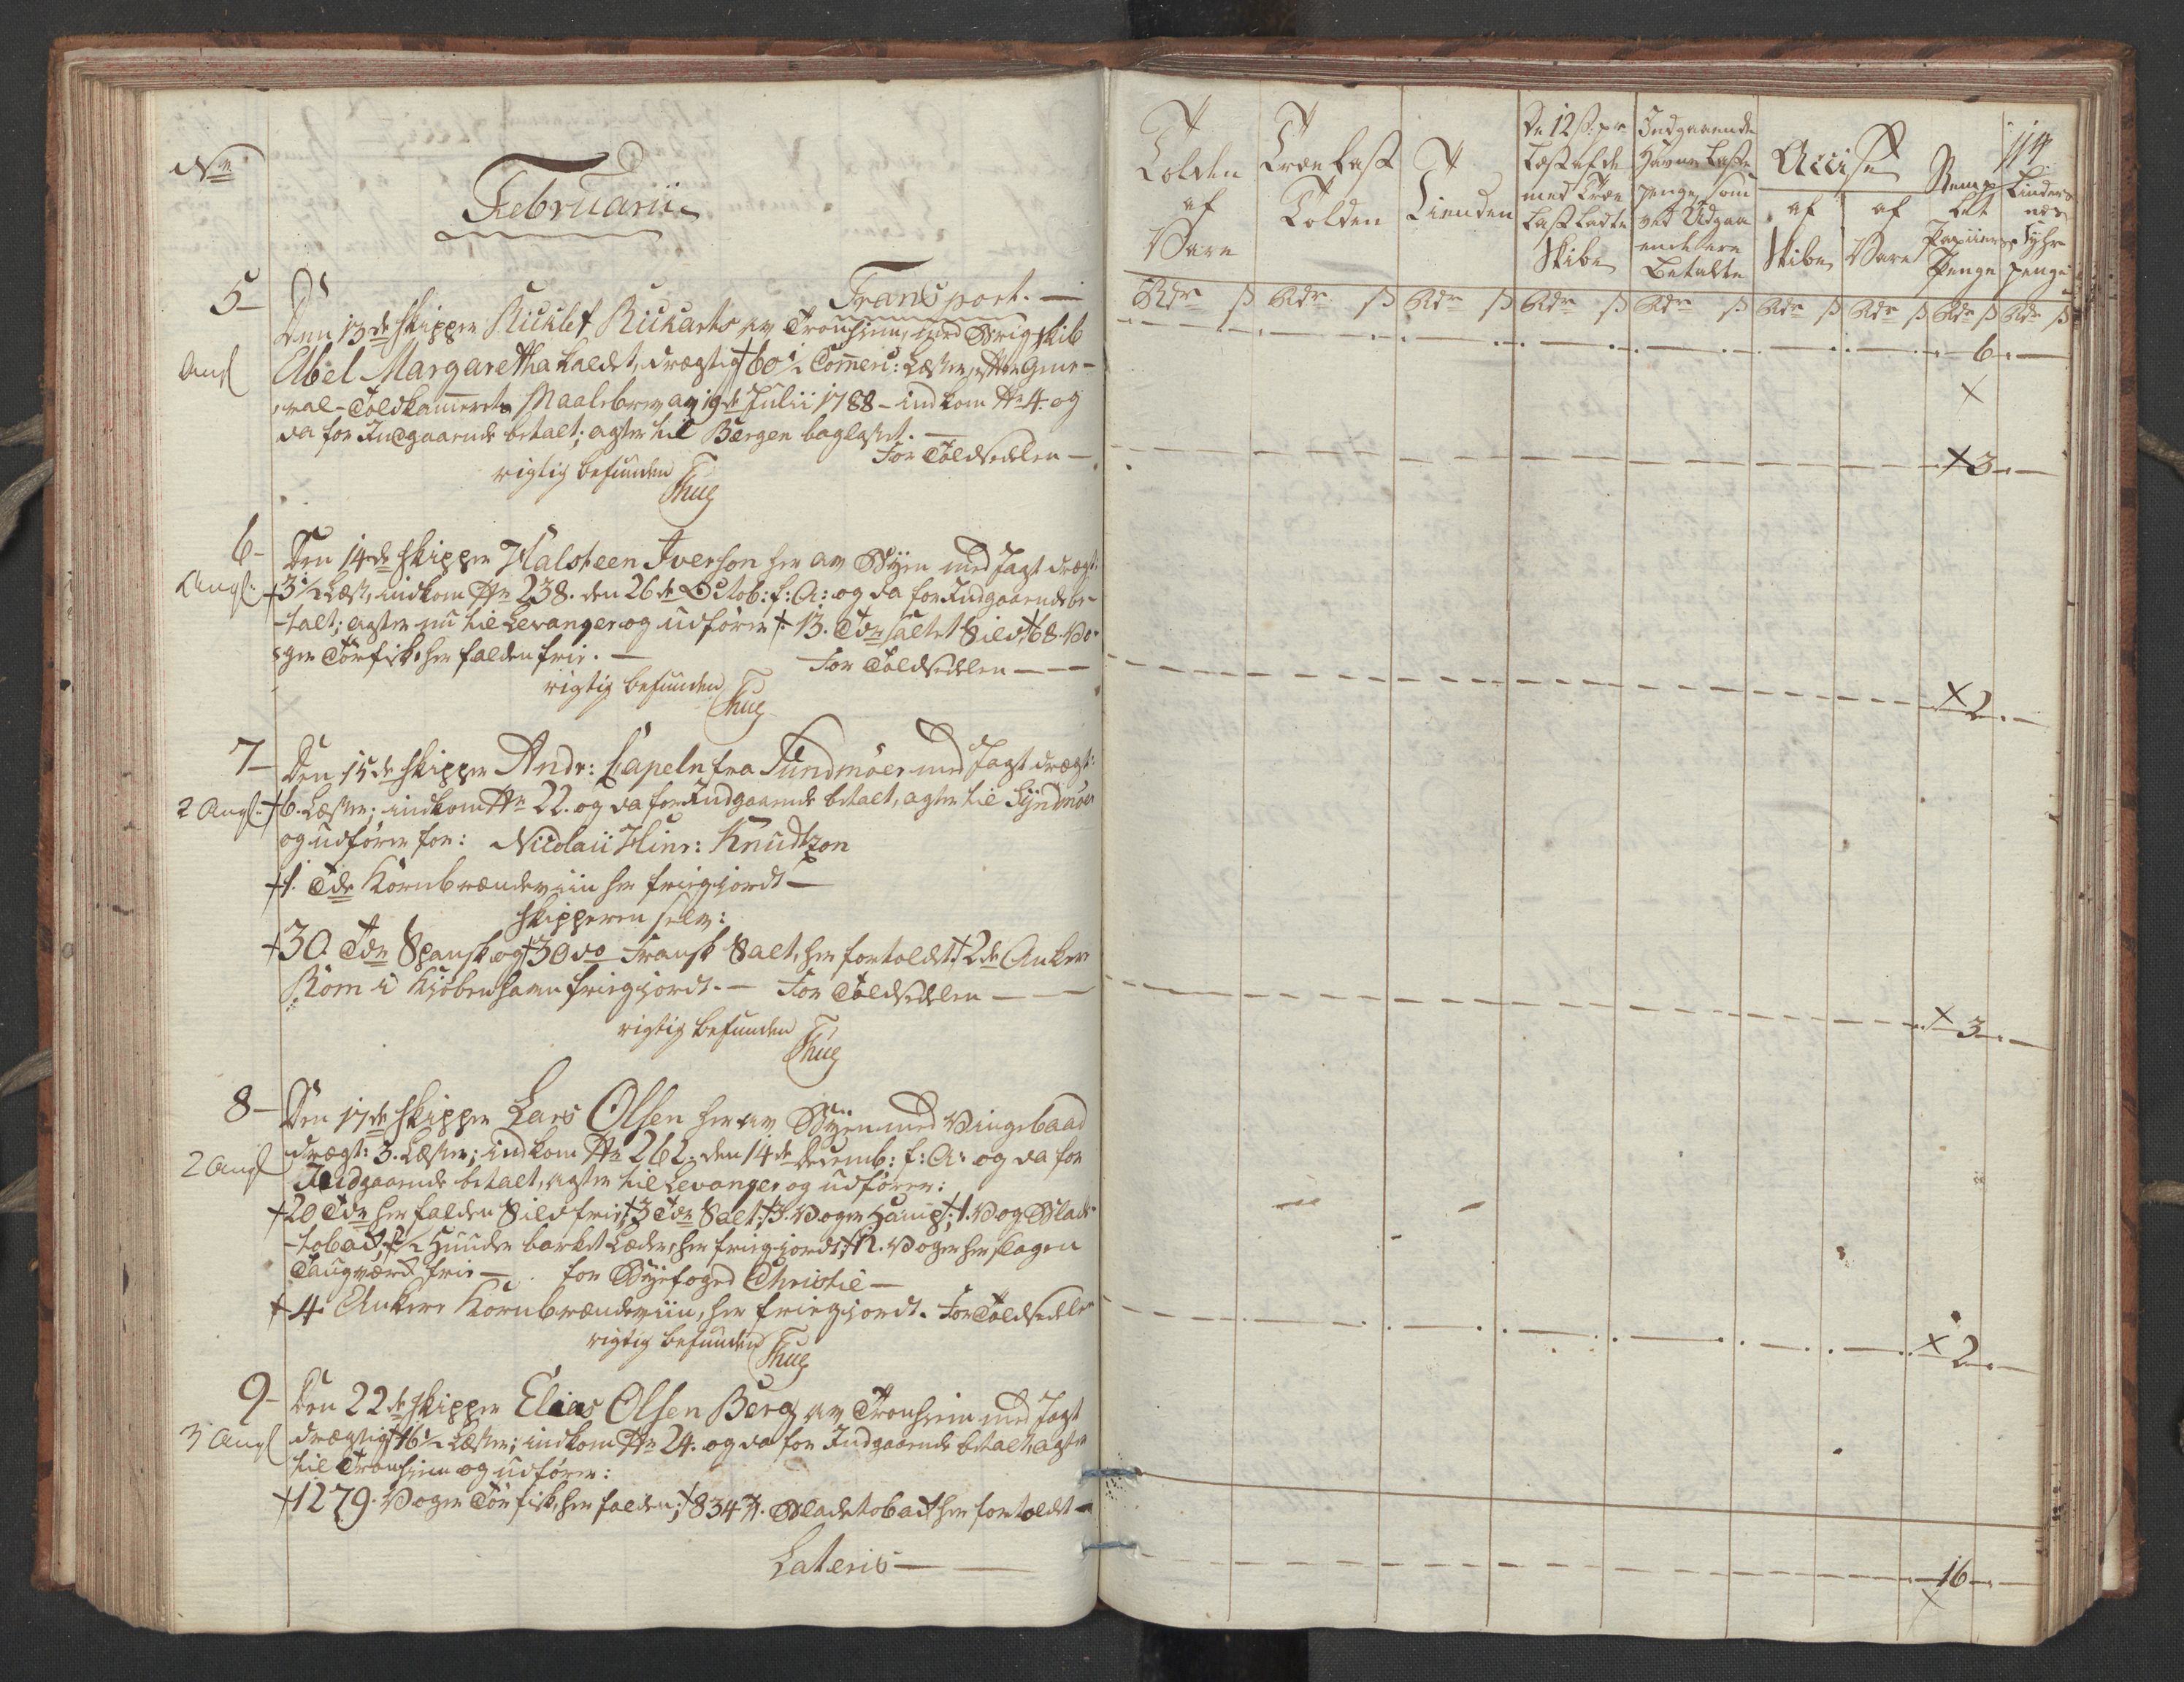 No
Februarii
Transport. —
5 —
Den 13de Skipper Ricklef Rickarts av Tronhiem, med Brig Skib
Angl
Abel Margaretha kaldet, drægtig † 60 1/2 Commerc: Læster, efter Gene-
-ral-Toldkammerets Maalebrev av 19de Julii 1788 - indkom No 4. og
da for Indgaaende betalt; agter til Bergen baglastet. —
For Toldsedelen —
rigtig befunden
Thue
6 -
Den 14de Skipper Halsteen Iverson her av Byen med Jagt drægt:
Angl:
† 3 1/2 Læst, indkom No 238. den 26de Octob: f: A: og da for Indgaaende be-
-talt; agter nu til Levanger og udfører † 13. Tdr saltet Sild † 68. Vo-
ger Törfisk, her falden frie. —
For Toldsedelen — — —
rigtig befunden
Thue
7 —
Den 15de Skipper Andr: Capeln fra Sundmöer med Jagt drægt:
2 Angl.
† 6. Læster; indkom No 22. og da for Indgaaende betalt, agter til Syndmöer
og udfører for: Nicolai Hinr: Knudtzon
† 1. Tde Kornbrændeviin her friegjordt —
Skipperen selv:
† 30. Tdr Spansk og † 30 do Fransk Salt, her fortoldet † 2de Anker
Rom i Kiøbenhavn friegjordt. — For Toldsedelen — —
rigtig befunden
Thue
8 —
Den 17de Skipper Lars Olsen her av Byen med Vingebaad
2 Angl
drægt: 3. Læster; indkom No 262. den 14de Decemb: f: A: og da for
Indgaaende betalt, agter til Levanger og udfører:
† 20 Tdr her falden Sild frie; † 3 Tdr Salt; † 3. Voger Hamp; † 1. Vog Blade-
-toback; † 2 Huuder barket Læder, her friegjordt; † 12. Voger her slagen
Taugværk frie — . for Byefoged Christie —
† 4. Ankere Kornbrændeviin, her friegjordt. For Toldsedelen
rigtig befunden
Thue
9 -
Den 22de Skipper Elias Olsen Berg av Tronhiem med Jagt
3 Angl
drægtig † 16 1/2 Læster; indkom No 24. og da for Indgaaende betalt, agter
til Tronhiem og udfører:
† 1279. Voger Törfisk, her falden; † 834 ℔. Bladetoback her fortoldet —
Lateris — —
114
Tolden af Vare
Trælast Tolden
Tienden
De 12 ß: pr Læst af de med Træ Last ladte Skibe
Indgaaende Havne Laste penge, som ved Udgaa ende ere Betalte
Accise
af Skibe
af Vare
Stemp let Papiiers Penge
Lindes nes Fyhr penge
Rdr ß Rdr ß Rdr ß Rdr ß Rdr ß Rdr ß Rdr ß Rdr ß Rdr ß
6. —
×
× 3. —
× 2. —
× 3. —
× 2. —
16 —
×